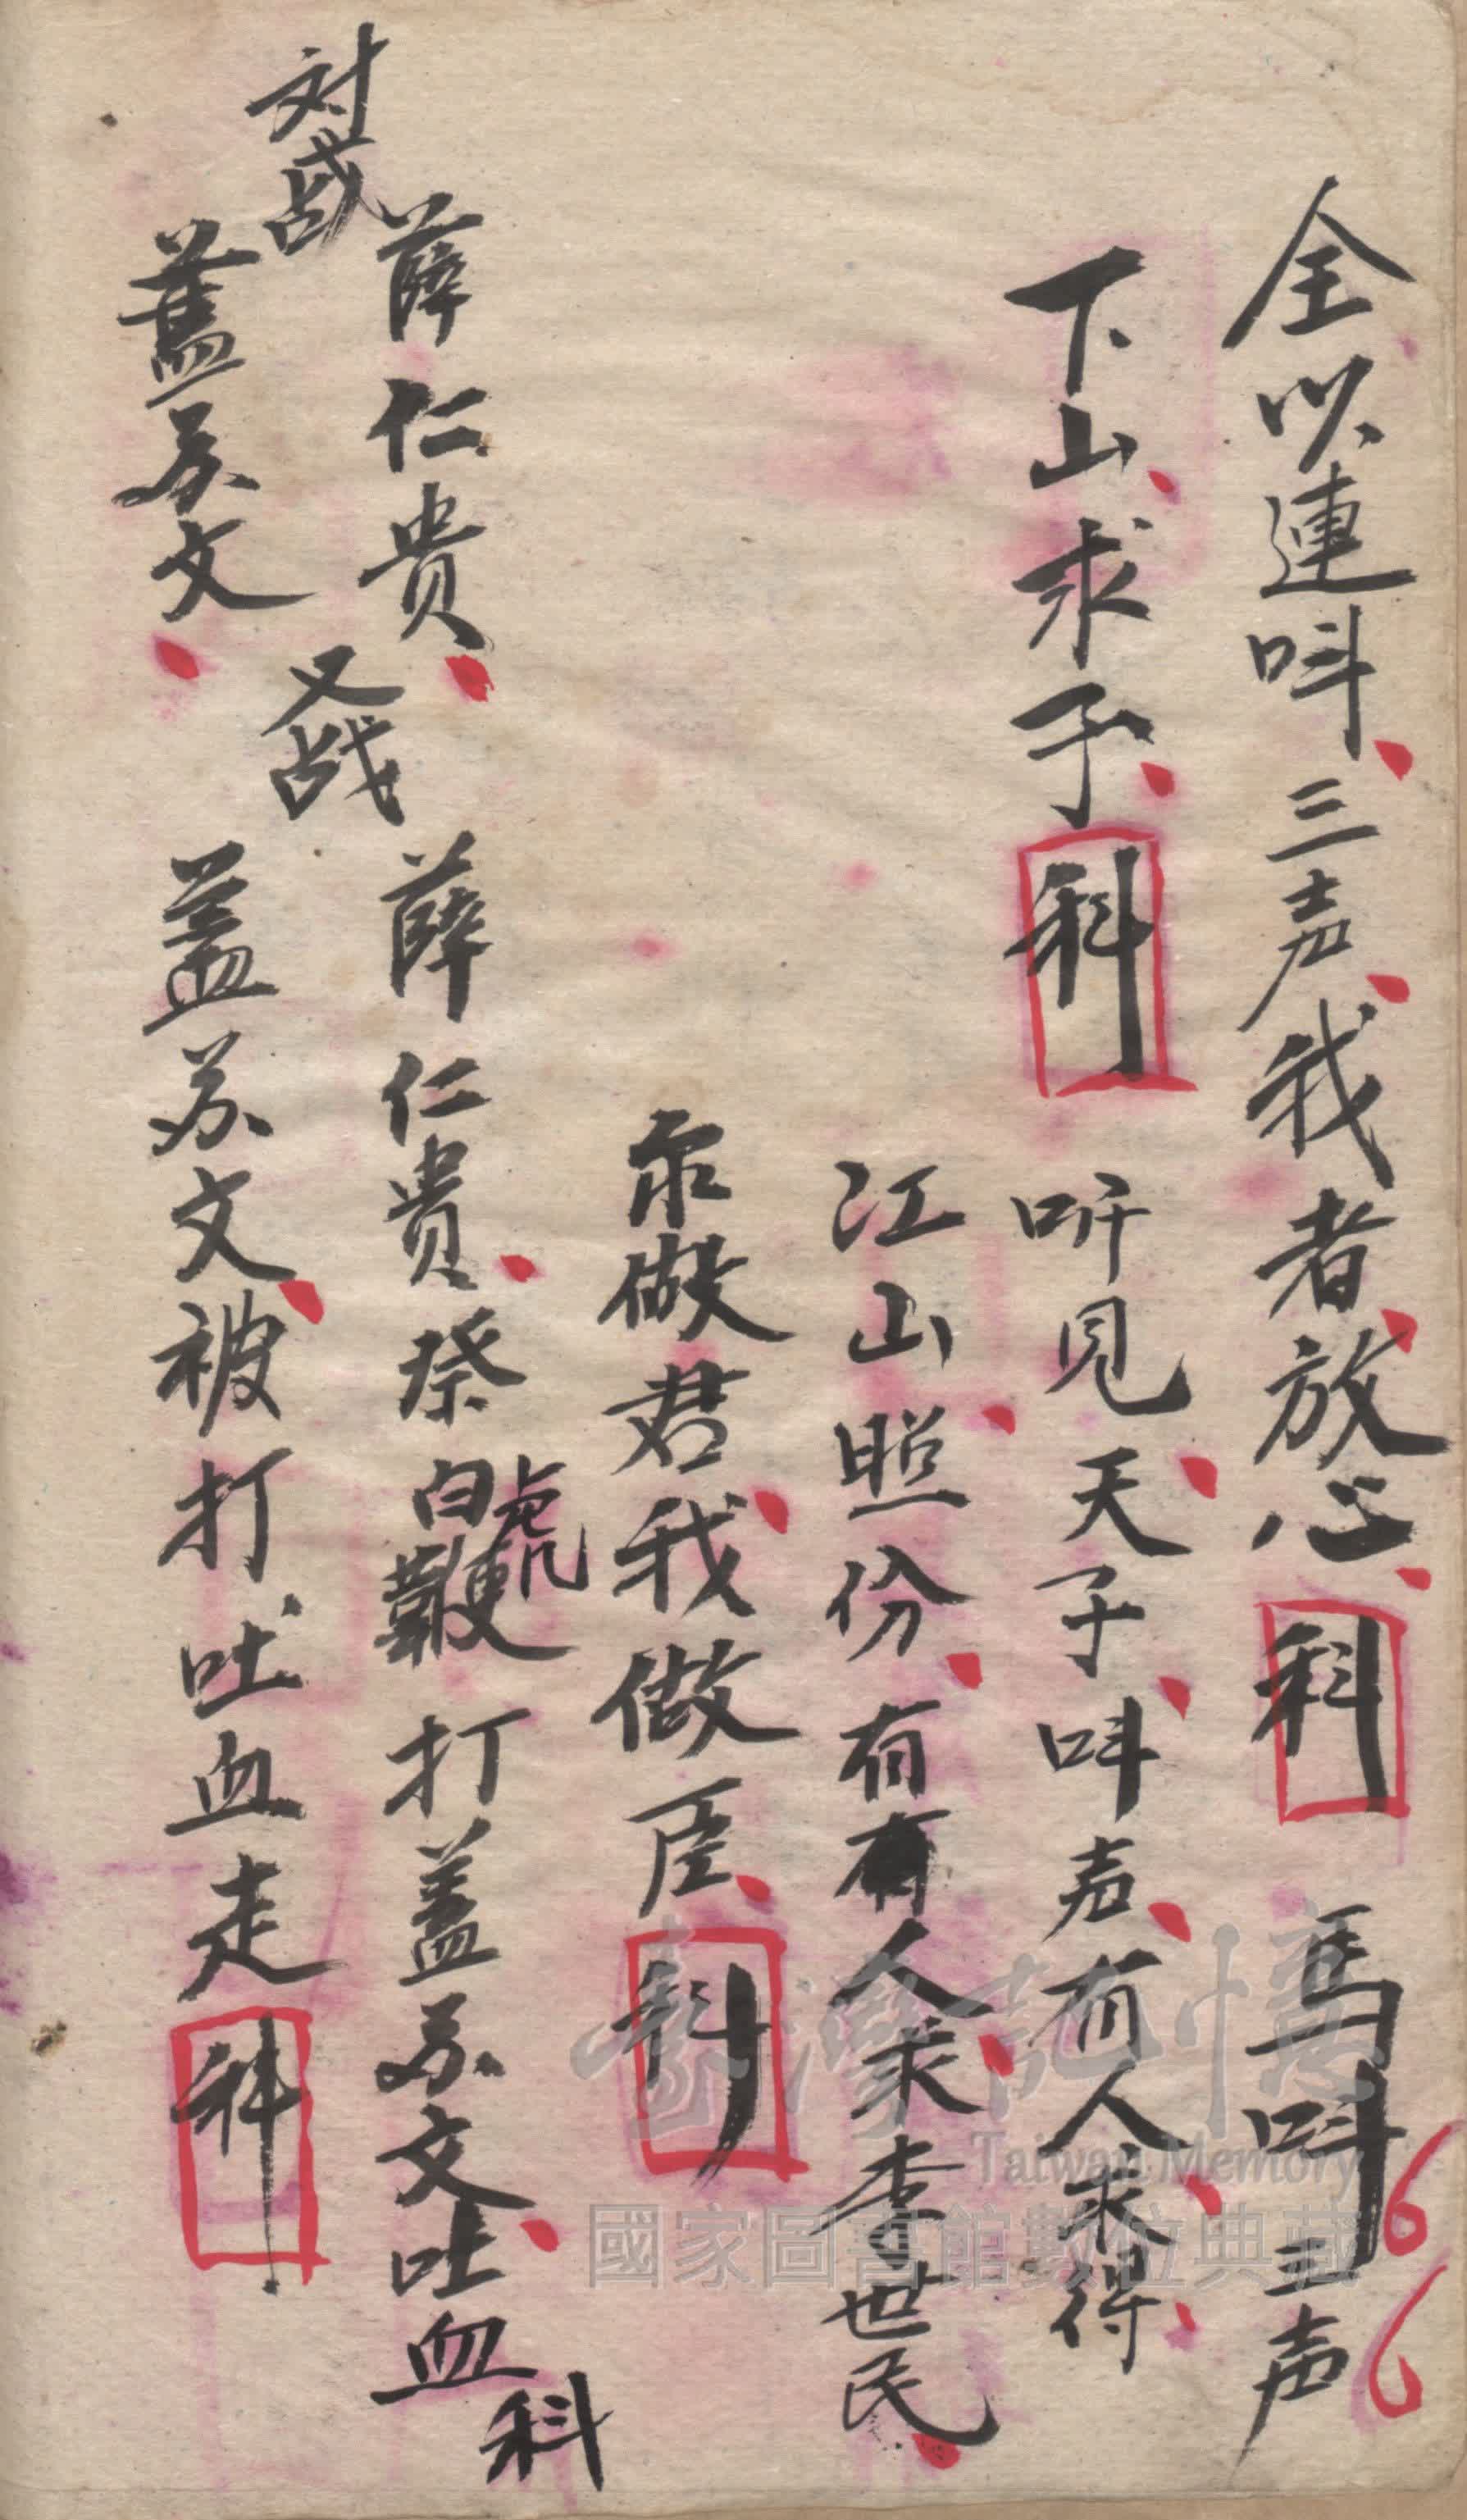 全以連呌三声我者放心科 馬呌三声
下山求子科 听見天子呌声有人求得
江山照份有有人求李世民
做君我做臣科
薛仁貴 薛仁貴祭白虎鞭打蓋苏文吐血科
对战 又战
蓋苏文 蓋苏文被打吐血走科
66
臺灣記憶
Taiwan Memory
國家圖書館數位典藏